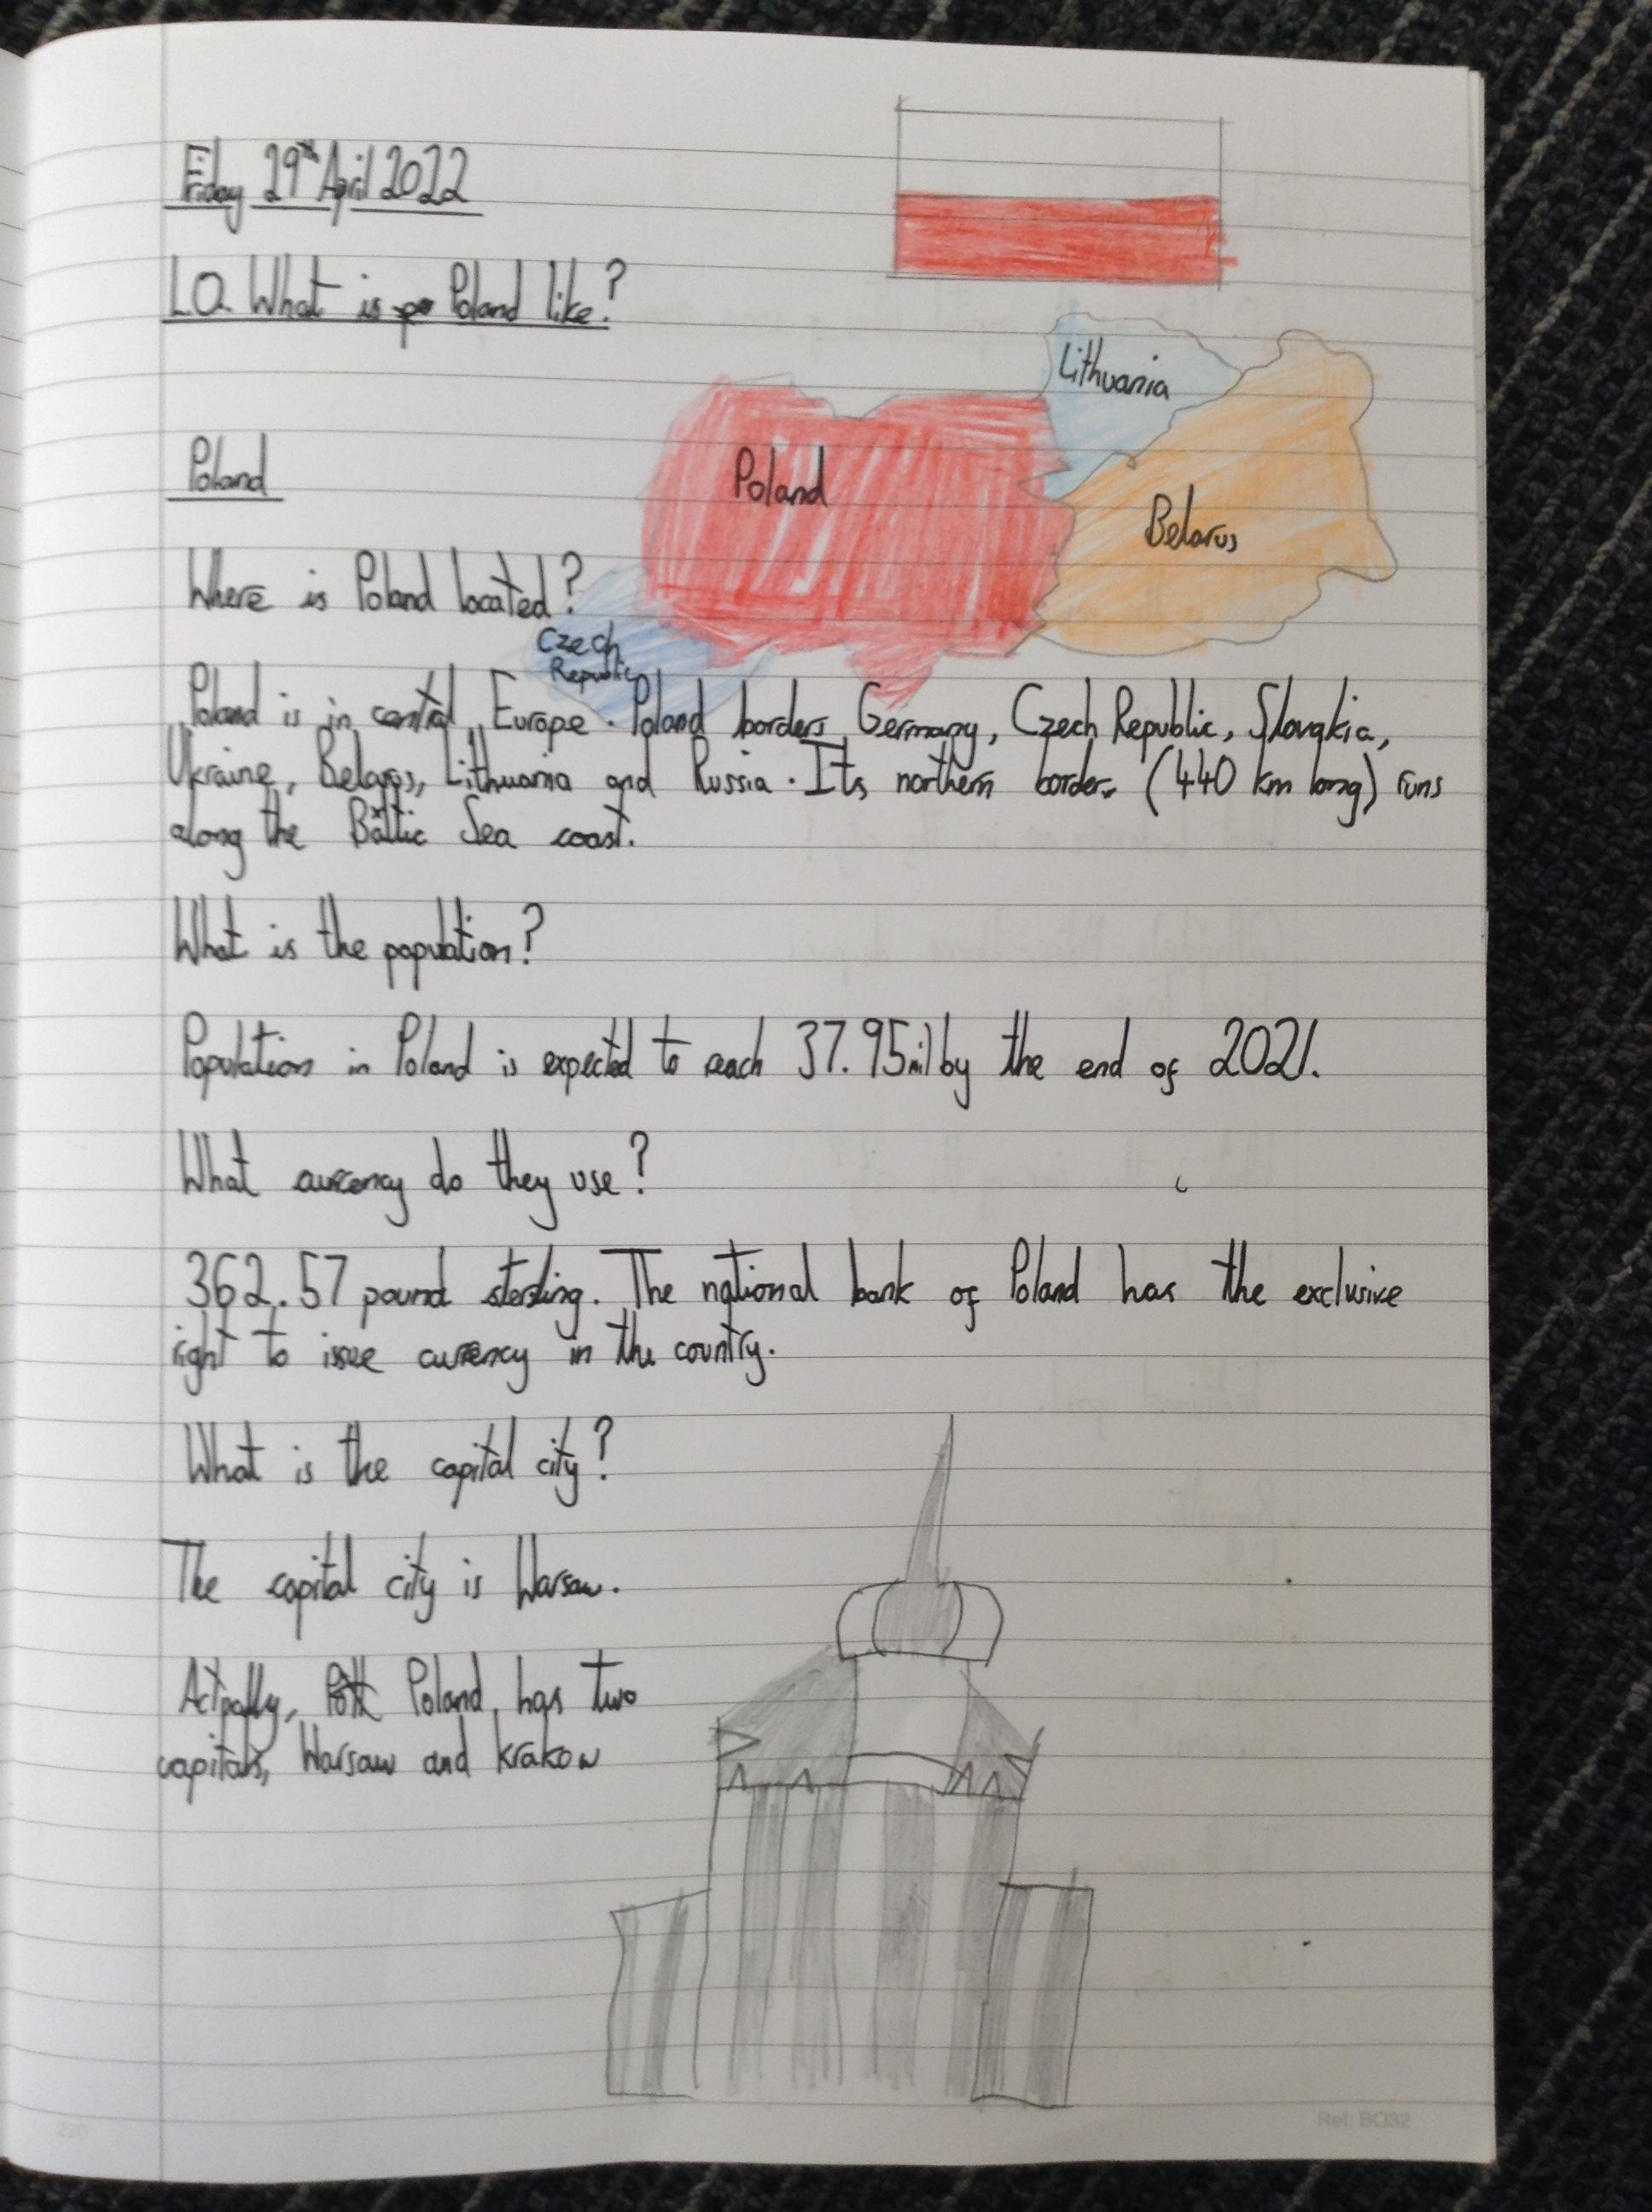 Friday 29th April 2022
L.O. What is po Poland like?
Lithuania
Poland
Poland
Belarus
Where is Poland located?
Czech
Republic
Poland is in central Europe. Poland borders Germany, Czech Republic, Slovakia,
Ukraine, Belarus, Lithuania and Russia. Its northern border (440 km long) runs
along the Baltic Sea coast.
What is the population?
Population in Poland is expected to reach 37.95mil by the end of 2021.
What currency do they use?
362.57 pound sterling. The national bank of Poland has the exclusive
right to issue currency in the country.
What is the capital city?
The capital city is Warsaw.
Actually, Poland has two
capitals, Warsaw and Krakow
220
Ref: BO32